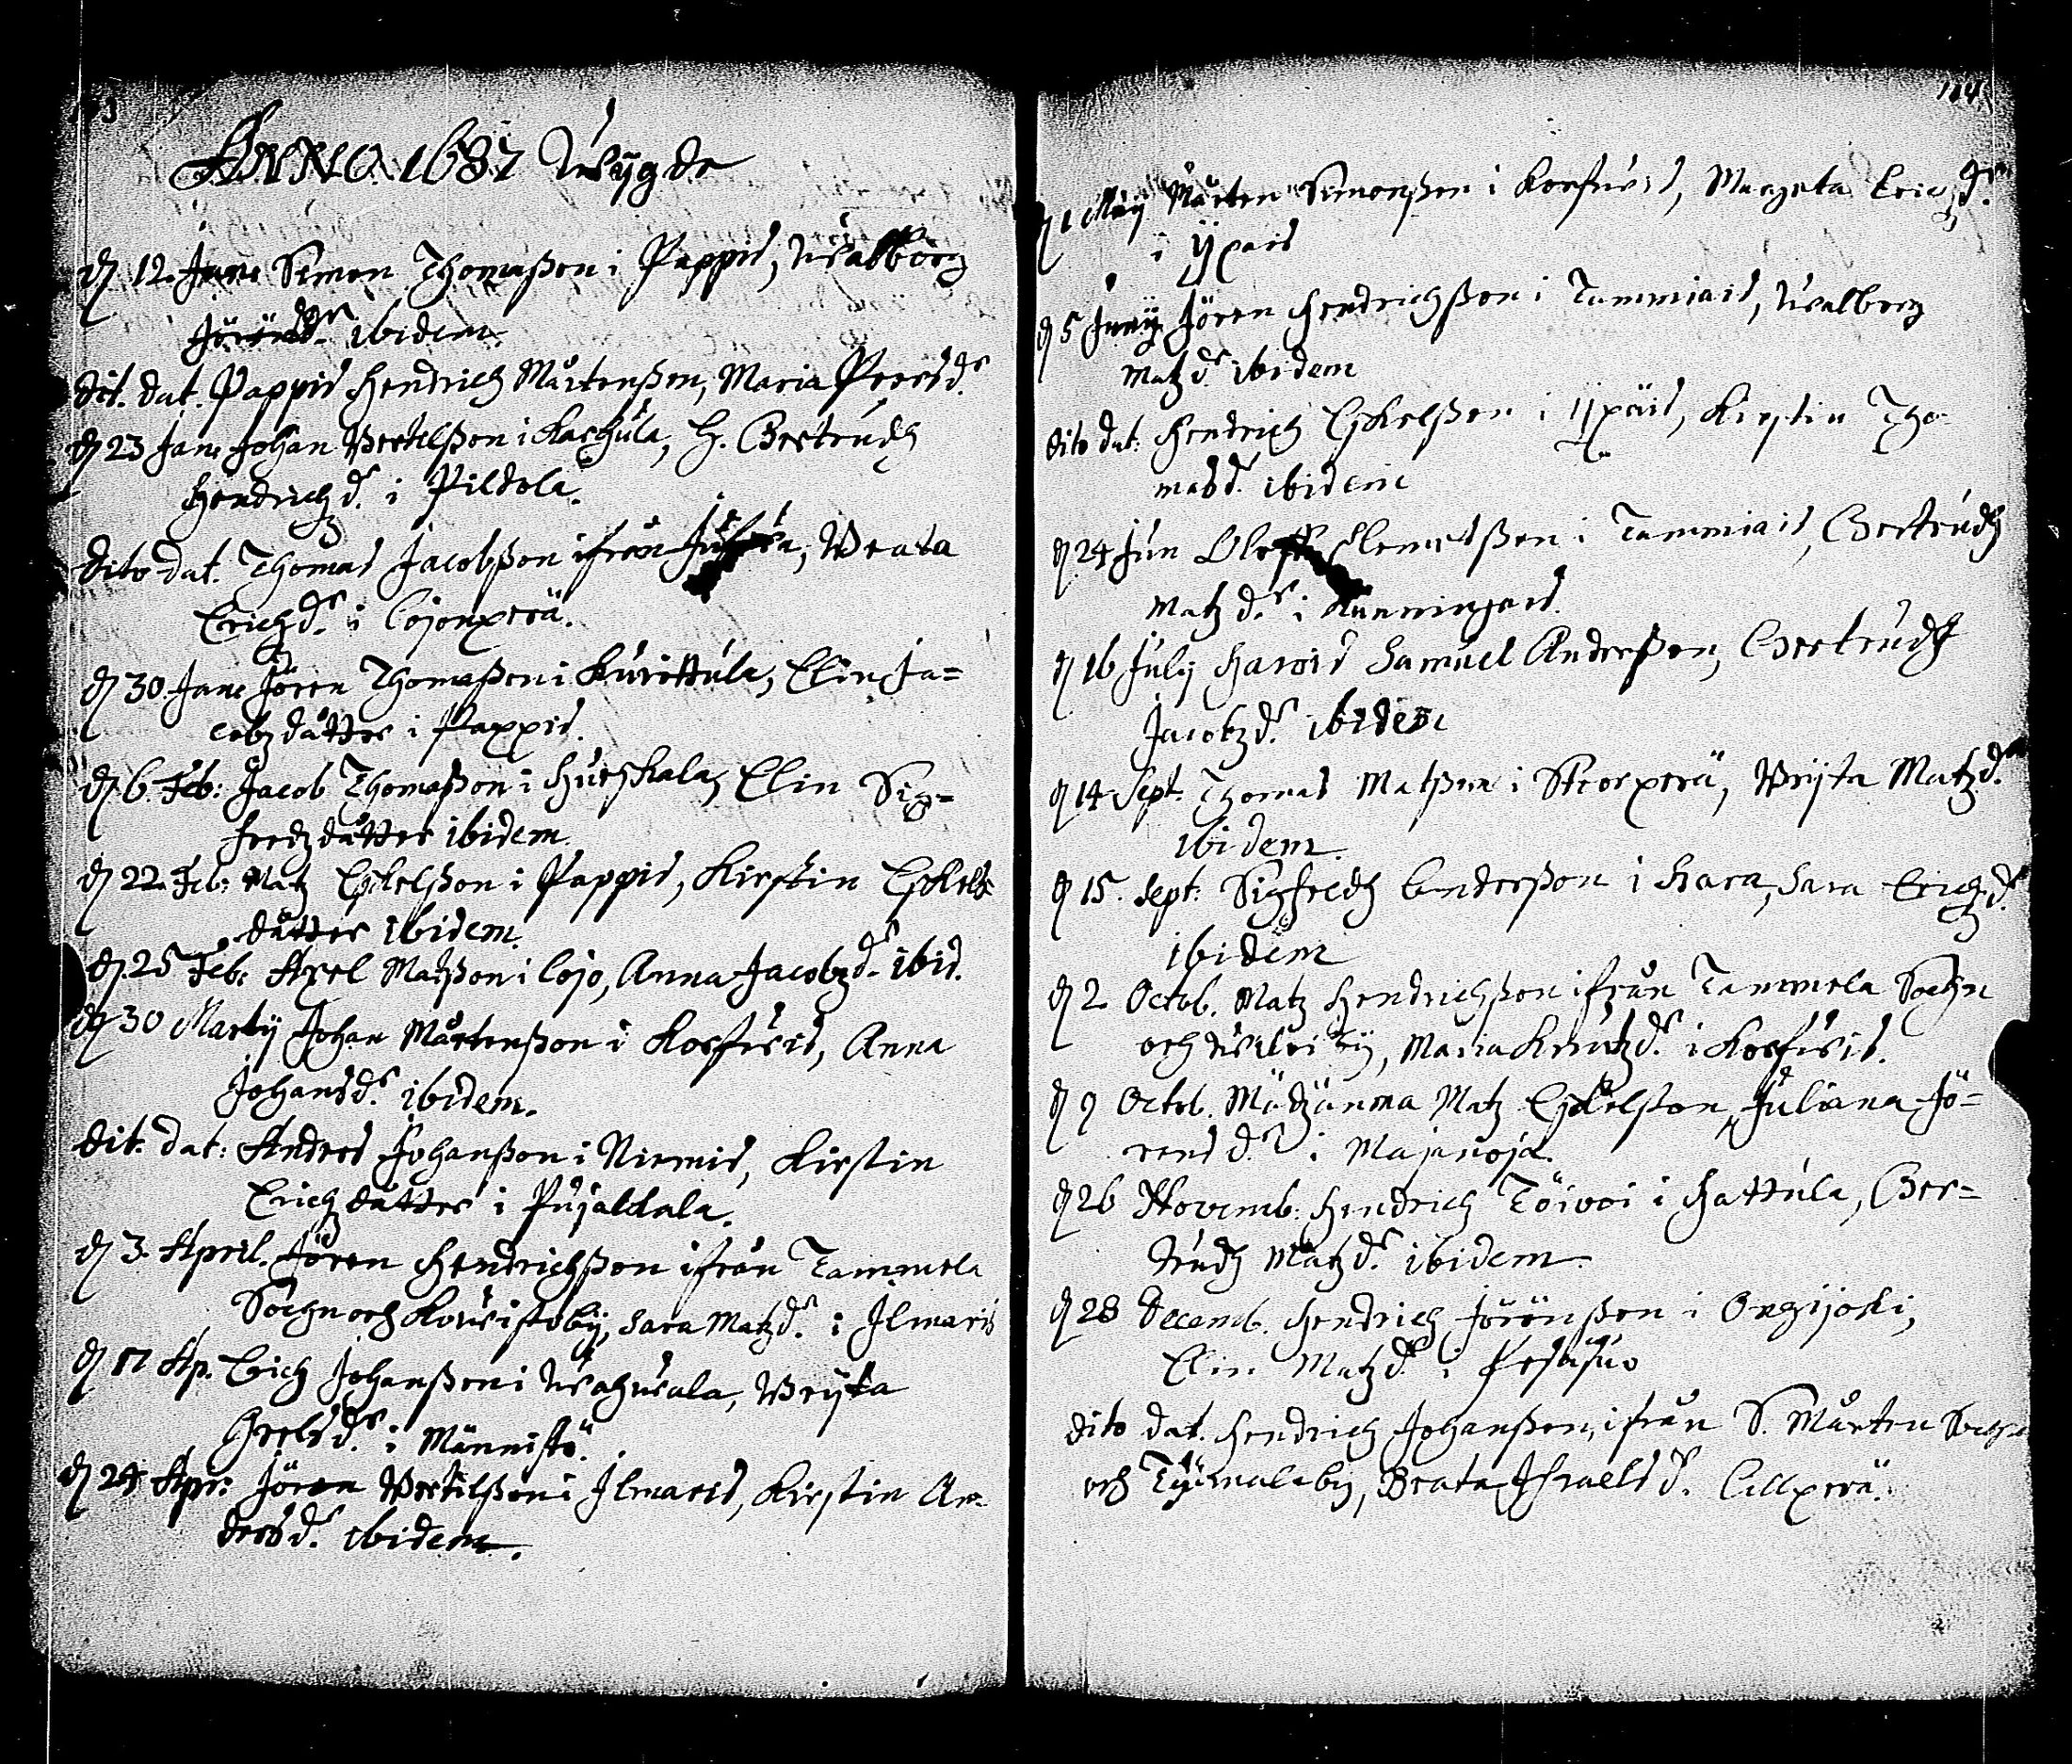 ANNO. 1687 Wijgde
d 12. Janu Simon Thomaßon i Pappis, Walborg
Jöransdr ibidem.
dit. dat. Pappis Hendrich Mårtenßon, Maria Peersdr
d 23 Janu Johan Bertilßon i Karhula, H. Gertrudh
Hendrichzdr i Pildola.
dito dat. Thomas Jacobßon ifrån, Beata
Erichzdr i Cojonperä.
d 30. Janu Jören Thomaßon i Kurittula, Elin Ja=
cobz dåtter i Pappis.
d 6. Feb: Jacob Thomaßon i Hurskala, Elin Sig=
fredz dåtter ibidem.
d 22. Feb: Matz Eskelßon i Pappis, Kirstin Eskels
dåtter ibidem.
d 25 Feb: Axel Matßon i Cojo, Anna Jacobzdr ibid.
d 30 Martij Johan Mårtenßon i Korfwis, Anna
Johansdr ibidem.
dit. dat: Anders Johanßon i Niemis, Kirstin
Erichz dåtter i Pujalkala.
d 3. April. Jören Hendrichßon ifrån Tammela
Sochn och Kouwistoby, Sara Matzdr i Ilmaris
d 17 Ap. Erich Johanßon i Wahwala, Brijta
Grelsdr i Männistö.
d 24 Apr: Jören Bertilßon i Ilmaris, Kirstin An
dersdr ibidem.
114
d 1 Maij Mårten Simonßon i Korfwis, Margeta Ericzdr
i Ypäis
d 5 Junij Jören Hendrichßon i Tammiais, Walborg
Matzdr ibidem
dito dat: Hendrich Eskelßon i Ypäis, Kirstin Tho
masdr ibidem
d 24 Jun Oleff Clemetßon i Tammiais, Gertrudh
Matzdr i
d 16 July Harois Samuel Anderßon, Gertrudh
Jacobzdr ibidem
d 14 Sept. Thomas Matßon i Storperä, Brijta Matzdr
ibidem.
d 15. Sept: Sigfredh Anderßon i Hara, Sara Erichzdr
ibidem
d 2 Octob. Matz Hendrichßon ifrån Tammela Sochn
och by, Maria Knutzdr i Korfwis.
d 9 Octob. Matz Eskelßon, Juliana Jö=
rensdr i Majanoja.
d 26 Novemb: Hendrich Töivoi i Hattula, Ger=
trudh Matzdr ibidem.
d 28 Decemb. Hendrich Jörönßon i Ongijoki,
Elin Matzdr i Pesäsuo
dito dat. Hendrich Johanßon, ifrån S. Mårten Sochn
och Työmäläby, Beata Israelsdr Callperä.